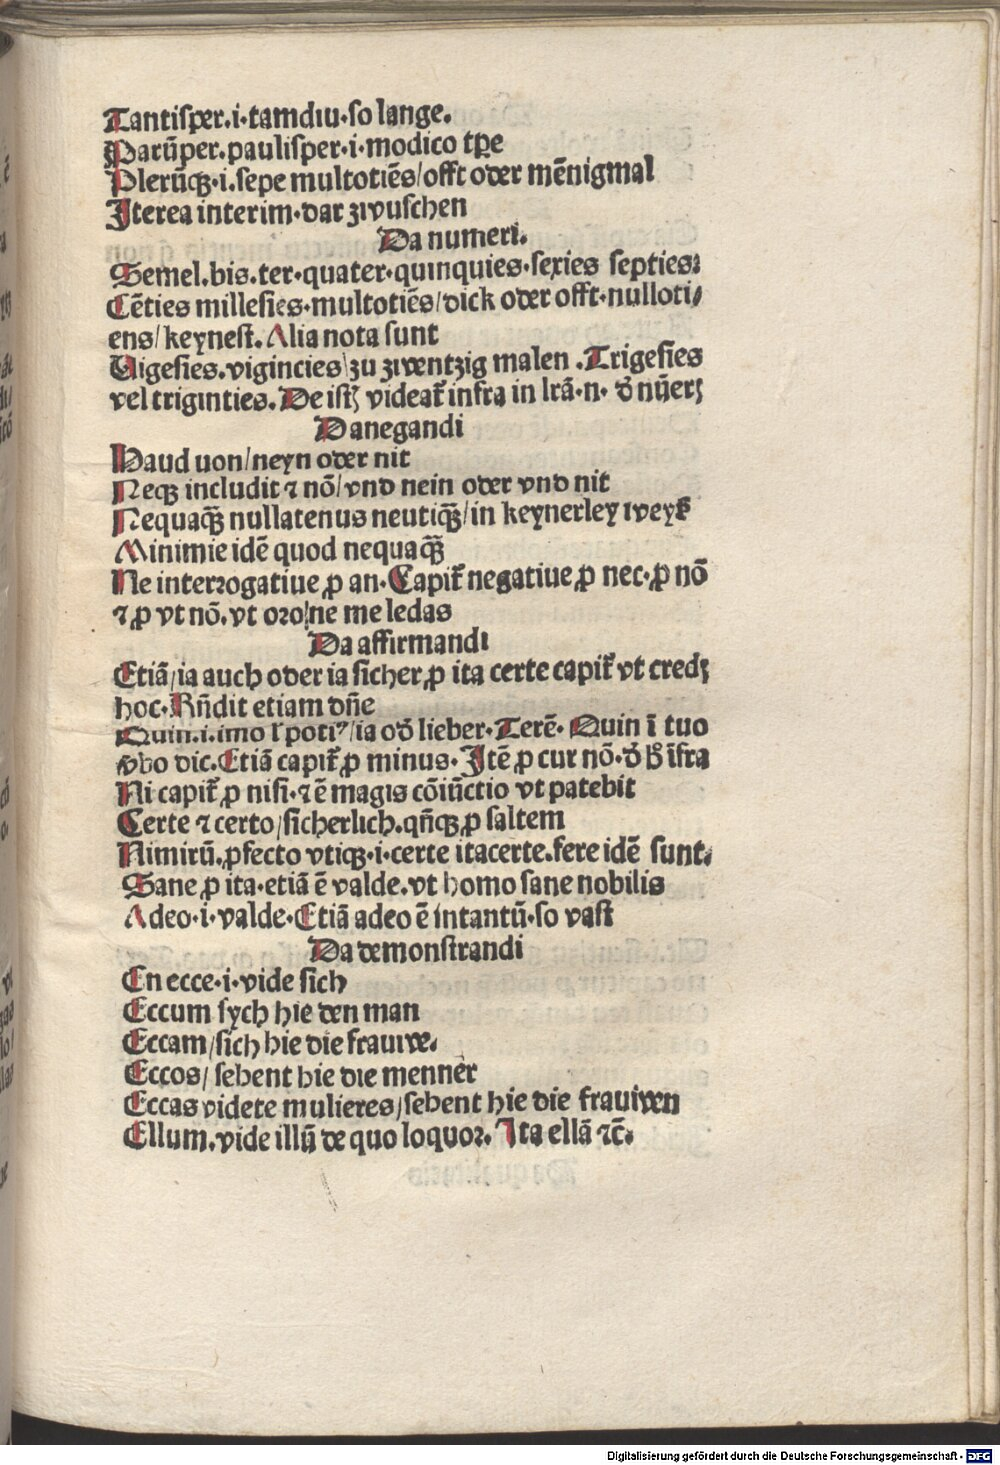 Tantiſper.i·tamdiu·ſo lange.
Parūper.pauliſper·i·modico tp̄e
Plerūqꝫ·i.ſepe multotiēs/offt oder mēnigmal
Iterea interim·dar zwuſchen
Da numeri.
Semel.bis.ter·quater·quinquies·ſexies ſepties:
Cēties milleſies·multotiēs/dick oder offt·nulloti/
ens/keyneſt. Alia nota ſunt
Uigeſies.vigincies/zu zwentzig malen .Trigeſies
vel triginties. De iſtꝫ videat᷑ infra in lrā·n· ꝺ̄ nūerꝫ
Da negandi
Haud uon/neyn oder nit
Neqꝫ includit ⁊ nō/vnd nein oder vnd nit
Nequaqꝫ̄ nullatenus neutiqꝫ̄/in keynerley weyß
Minimie idē quod nequaqꝫ̄
Ne interrogatiue ꝓ an. Capit᷑ negatiue ꝓ nec·ꝓ nō
⁊ ꝓ vt nō.vt oro/ne me ledas
Da affirmandi
Etiā/ia auch oder ia ſicher ꝓ ita certe capit᷑ vt credꝫ
hoc· Rn̄dit etiam dn̄e
Quin.i.imo ł potiꝰ/ia oð lieber·Terē· Quin ī tuo
v̄bo dic.Etiā capit᷑ ꝓ minus· Itē ꝓ cur nō·ꝺ̄ ꝗ̄ īfra
Ni capit᷑ ꝓ niſi·⁊ ē magis cōiūctio vt patebit
Certe ⁊ certo/ſicherlich.qn̄qꝫ ꝓ ſaltem
Nimirū.ꝓfecto vtiqꝫ·i·certe itacerte.fere idē ſunt.
Sane ꝓ ita·etiā ē valde.vt homo ſane nobilis
Adeo·i·valde·Etiā adeo ē intantū·ſo vaſt
Da demonſtrandi
En ecce·i·vide ſich
Eccum ſych hie den man
Eccam/ſich hie die frauwe.
Eccos/ ſehent hie die menner
Eccas videte mulieres/ſehent hie die frauwen
Ellum.vide illū de quo loquor. Ita ellā ⁊c̄.
Digitalisierung gefördert durch die Deutsche Forschungsgemeinschaft - DFG